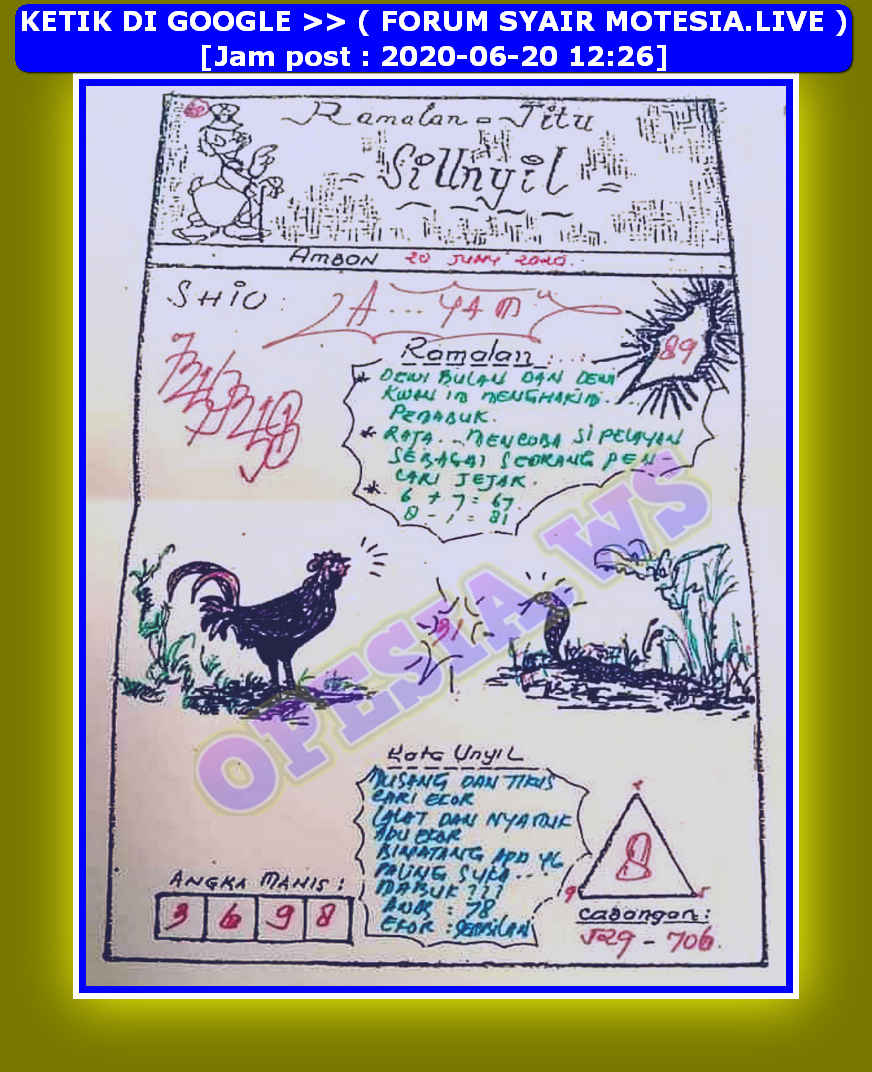 KETIK DI GOOGLE >> ( FORUM SYAIR MOTESIA.LIVE )
[Jam post : 2020-06-20 12:26]
Ramalan = Jitu
SiUnyil
AMBON 20 JUNY 2020.
SHIO : "A... YAM"
89
Ramalan : . . . .
* DEWI BULAN DAN DEWI
KWAN IM MENGHAKIMI.
PEMABUK.
* RAJA... MENCOBA SI PELAYAN
SEBAGAI SEORANG PEN
CARI JEJAK.
* 6 + 7 = 67.
8 - 1 = 81
31
OPESIA.WS
Kata Unyil
MUSANG DAN TIKUS
CARI EKOR
LALAT DAN NYAMUK
ADU EKOR
BINATANG APA YG
PALING SUKA....
MABUK ???
ANGK : 78
EKOR : SEMBILAN
ANGKA MANIS :
3 6 9 8
8
9
Cabangan :
529 - 706.